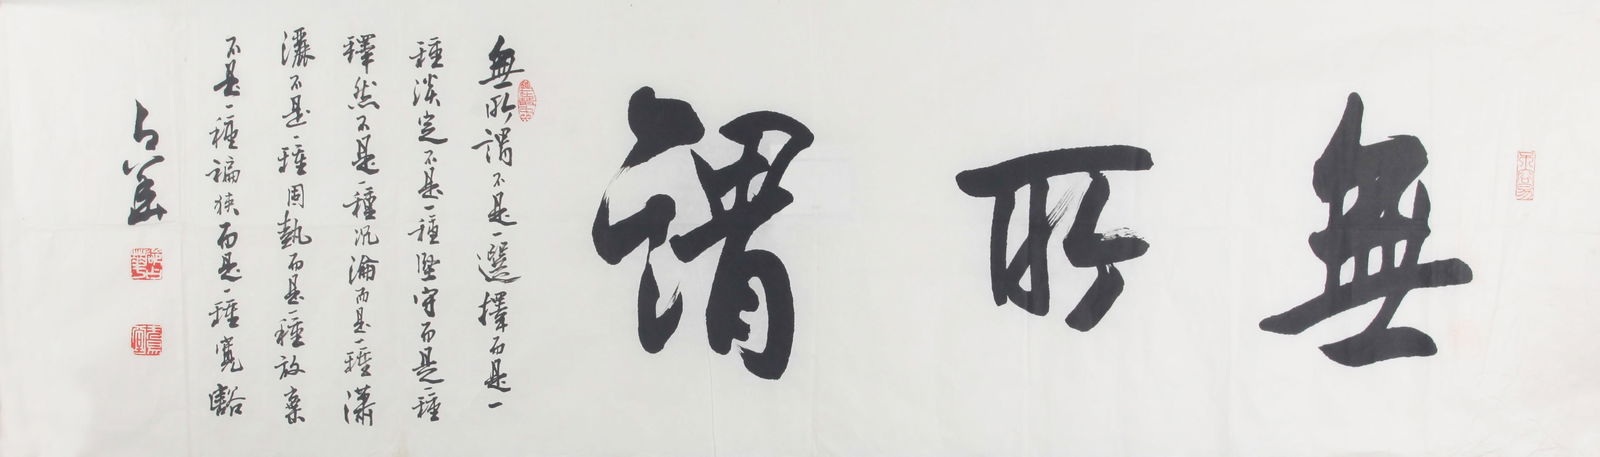 無所謂
無所謂不是一選擇而是一
種淡定不是一種堅守而是一種
釋然不是一種沉淪而是一種瀟
灑不是一種固執而是一種放棄
不是一種褊狹而是一種寬豁